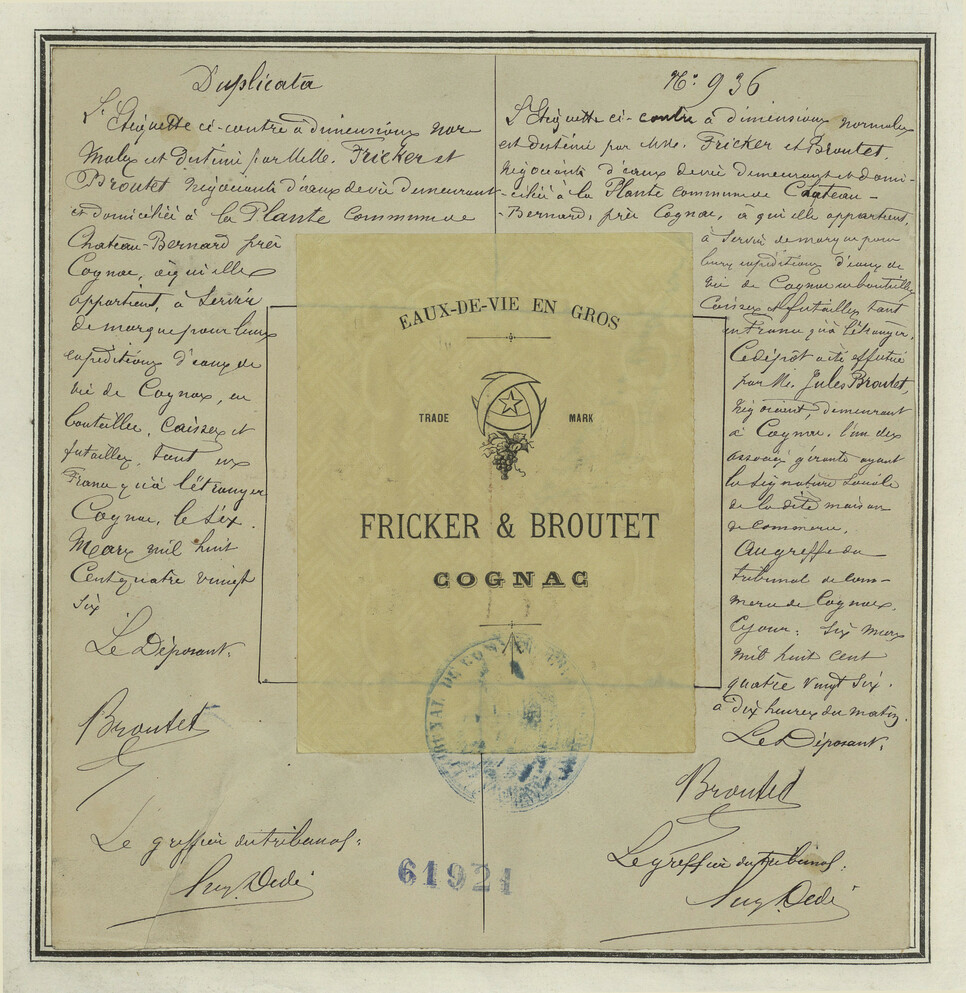 Duplicata
L'Etiquette ci-contre a dimensions nor
males est destiné par MMs. Fricker et
Broutet Négociants d'eaux de vie demeurant
et domiciliés à la Plante commune de
Chateau-Bernard près
Cognac, à qui elle
appartient, à servir
de marque pour leurs
expéditions d'eaux de
vie de Cognac, en
bouteilles, caisses et
futailles, tant en
France qu'à l'étranger
Cognac, le six
Mars mil huit
Cent quatre vingt
six
Le Déposant.
Broutet
Le greffier du tribunal:
N° 936
L'Etiquette ci-contre a dimensions normales
est destiné par MMs. Fricker et Broutet,
Négociants d'eaux de vie demeurant et domi-
-ciliés à la Plante commune de Chateau-
-Bernard, près Cognac, à qui elle appartient,
à servir de marque pour
leurs expéditions d'eaux de
vie de Cognac en bouteilles
Caisses et futailles tant
en France qu'à l'étranger.
Ce dépôt a été effectué
par M. Jules Broutet,
Négociant, demeurant
à Cognac, l'un des
associés gérants ayant
la signature sociale
de la dite maison
de commerce.
Au greffe du
tribunal de Com-
merce de Cognac,
Ce jour: six mars
mil huit cent
quatre vingt six.
à Dix heures du matin.
Le Déposant,
Broutet
Le greffier du tribunal:
EAUX-DE-VIE EN GROS
TRADE MARK
FRICKER & BROUTET
COGNAC
61921